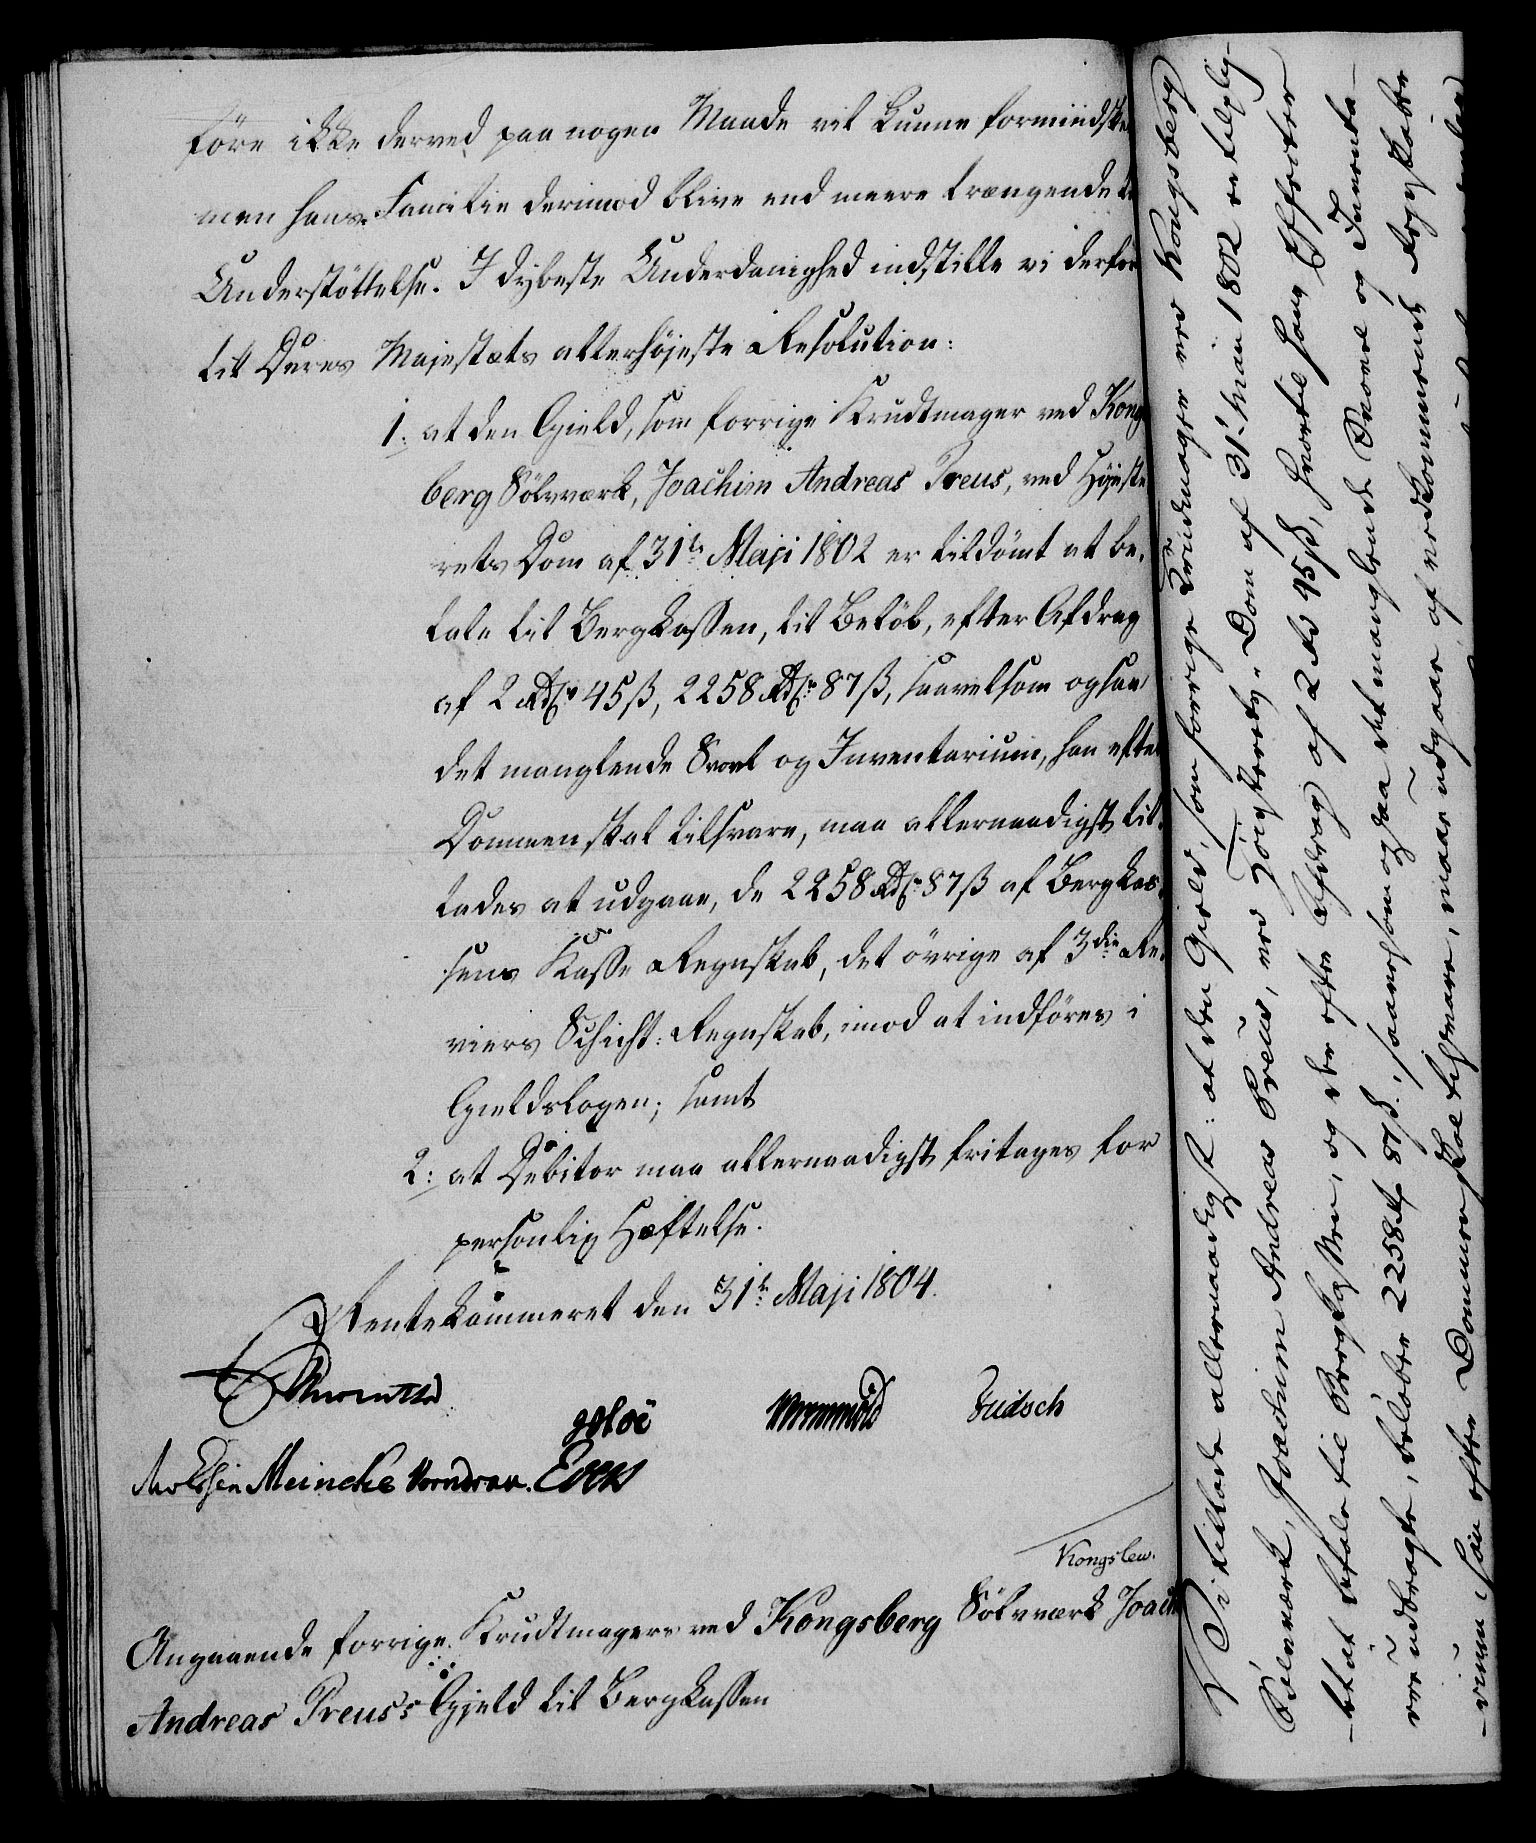 före ikke derved paa nogen Maade vil kunne formindskes
men hans Familie derimod blive end meere trængende til
Understöttelse. I dybeste Underdanighed indstille vi derfor
til Deres Majestæts allerhöjeste Resolution:
1. at den Gield, som forrige Krudtmager ved Kongs
berg Sölvværk, Joachim Andreas Preus, ved Höjeste
rets Dom af 31te Maji 1802 er tildömt at be-
tale til Bergkassen, til Belöb, efter Afdrag
af 2 Rdlr 45 ß, 2258 Rdlr 87 ß, saavelsom ogsaa
det manglende Svovl og Inventarium, han efter
Dommen skal tilsvare, maa allernaadigst til-
lades at udgaae, de 2258 Rdlr 87 ß af Bergkas-
sens Kasse Regnskab, det övrige af 3die Re-
viers Schicht-Regnskab, imod at indföres i
Gieldsbogen; samt
2: at Debitor maa allernaadigst fritages for
personlig Hæftelse.
Rentekammeret den 31te Maji 1804.
Wormskiold Fridsch
Meincke
Kongslew.
Angaaende forrige Krudtmagers ved Kongsberg Sölvværk Joach
Andreas Preus's Gjeld til Bergkassen
Vi tillade allernaadigst: at den Gield, som forrige Krudtmager ved Kongsberg
Sølvværk, Joachim Andreas Preus, ved Höjesterets Dom af 31te Maii 1802 er tilplig-
-tet at betale til Bergkassen, og der efter Afdrag af 2 Rd 45 ß, hvortil hans Effecter
ere udbragte, belöber 2258 Rd 87 ß; saavelsom ogsaa det manglende Svovl og Inventa-
-rium, han efter Dommen skal tilsvare, maae udgaae af vedkommende Regnskaber